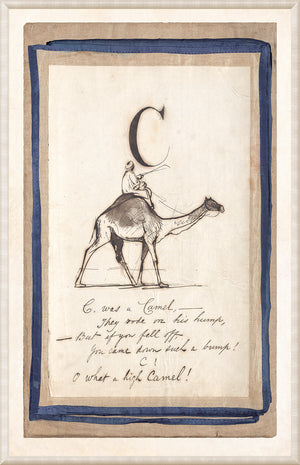 C
C. was a Camel, —
They rode on his hump,
— But if you fell off—
You came down such a bump!
C!
O what a high Camel!